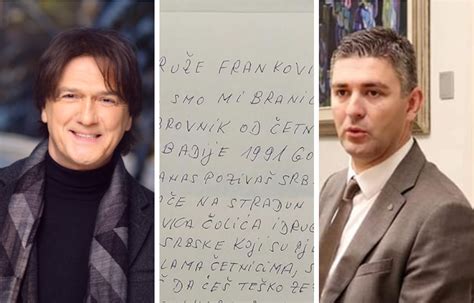 RUŽE FRANKOVI
SMO MI BRANIL
BROVNIK OD ČETN
BADIJE 1991 GO
ANAS POZIVAŠ SRB
OČE NA STRADUN
VICA ČOLIĆA I DRUG
SRBSKE KOJI SU
LAMA ČETNICIMA, S
Š DA ĆEŠ TEŠKO